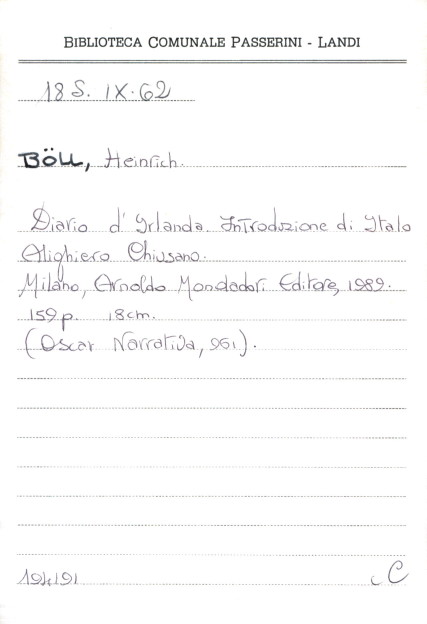 BIBLIOTECA COMUNALE PASSERINI - LANDI
18 S. IX. 62
BÖLL, Heinrich.
Diario d'Irlanda. Introduzione di Italo
Alighiero Chiusano.
Milano, Arnoldo Mondadori Editore, 1989.
159 p. 18 cm.
(Oscar Narrativa, 961).
C